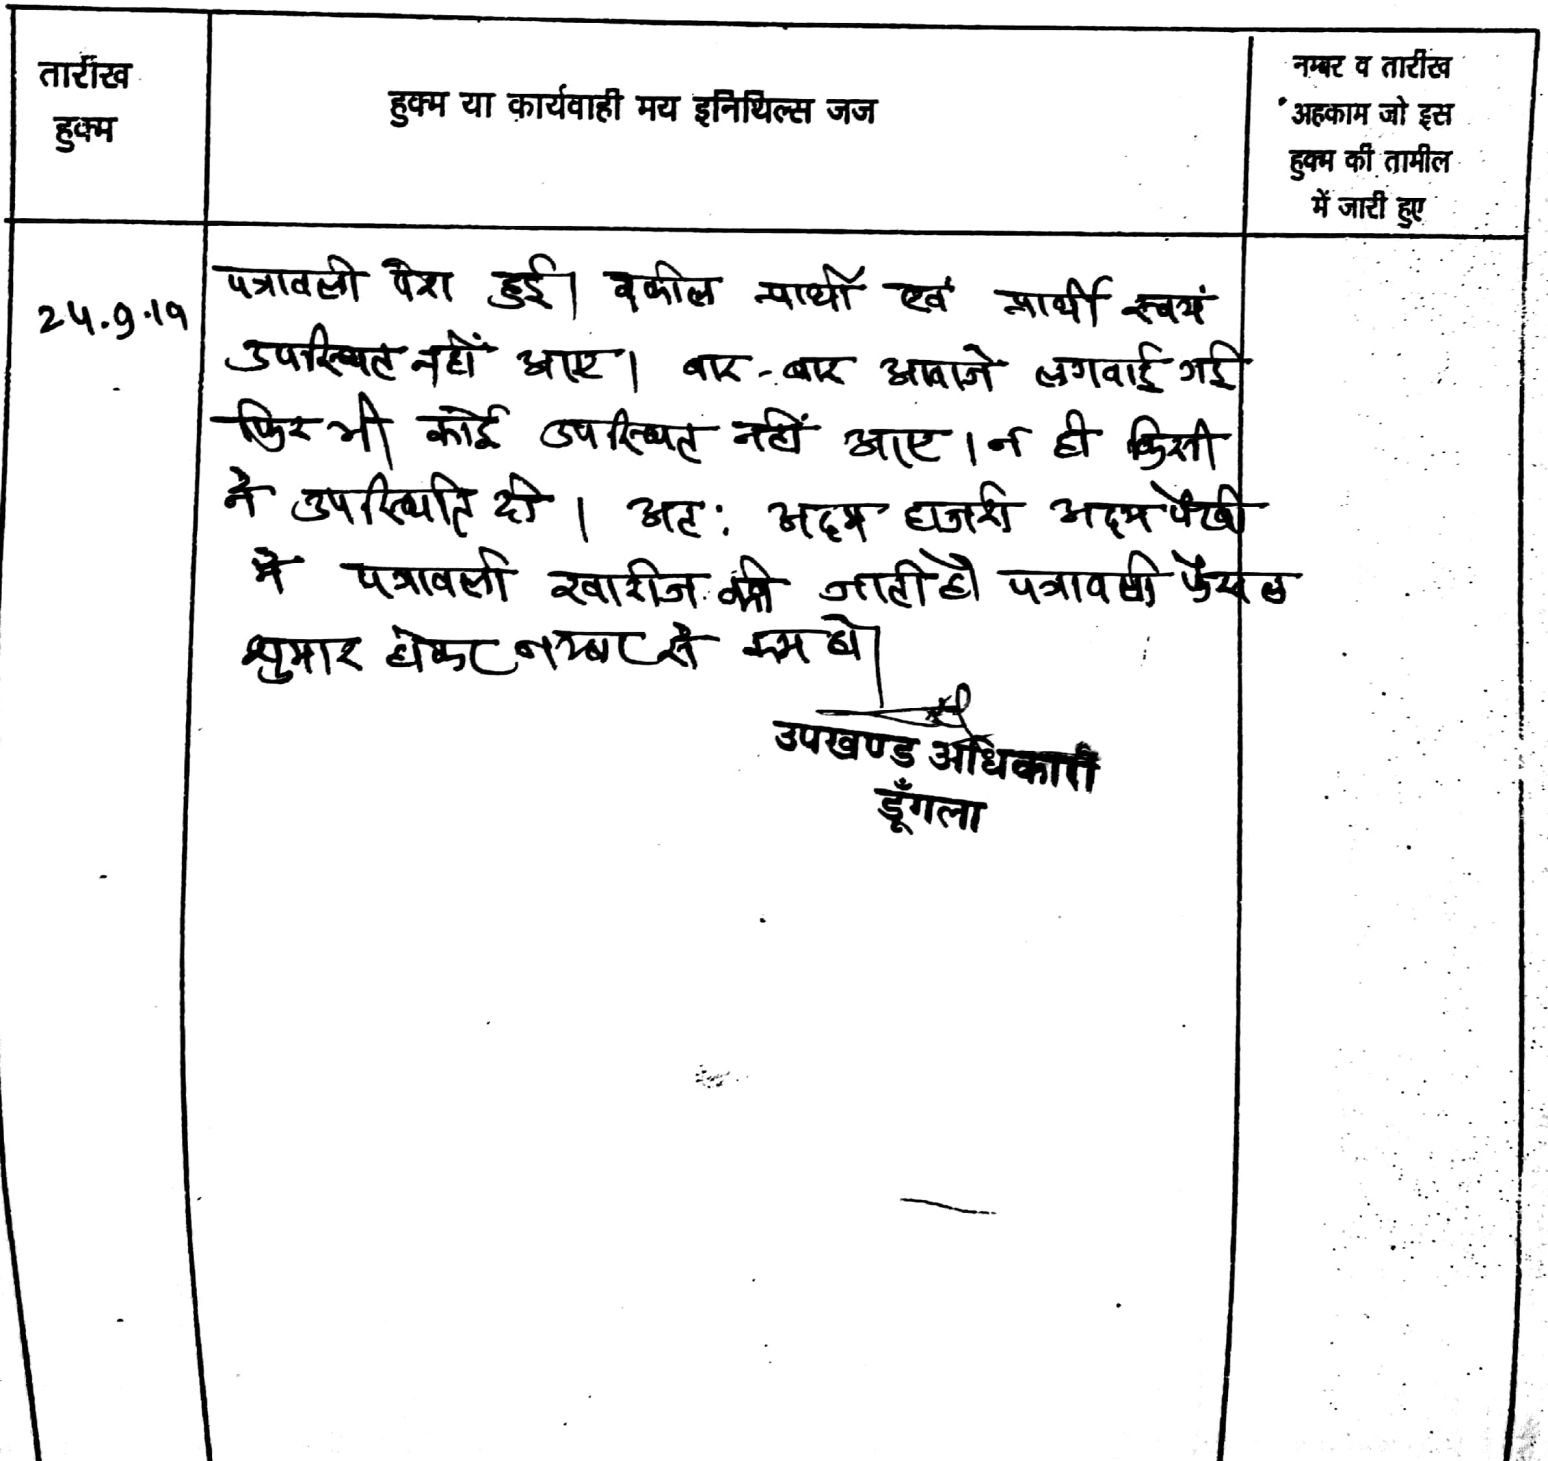 तारीख
हुक्म
हुक्म या कार्यवाही मय इनिथिल्स जज
नम्बर व तारीख
अहकाम जो इस
हुक्म की तामील
में जारी हुए
24.9.19
पत्रावली पेश हुई। वकील प्रार्थी एवं प्रार्थी स्वयं
उपस्थित नहीं आए। बार-बार आवाजे लगवाई गई
फिर भी कोई उपस्थित नहीं आए। न ही किसी
ने उपस्थिति दी। अतः अदम हाजरी अदम पैरवी
में पत्रावली खारीज की जाती है पत्रावली फैसल
शुमार होकर नम्बर से कम हो।
उपखण्ड अधिकारी
डूँगला